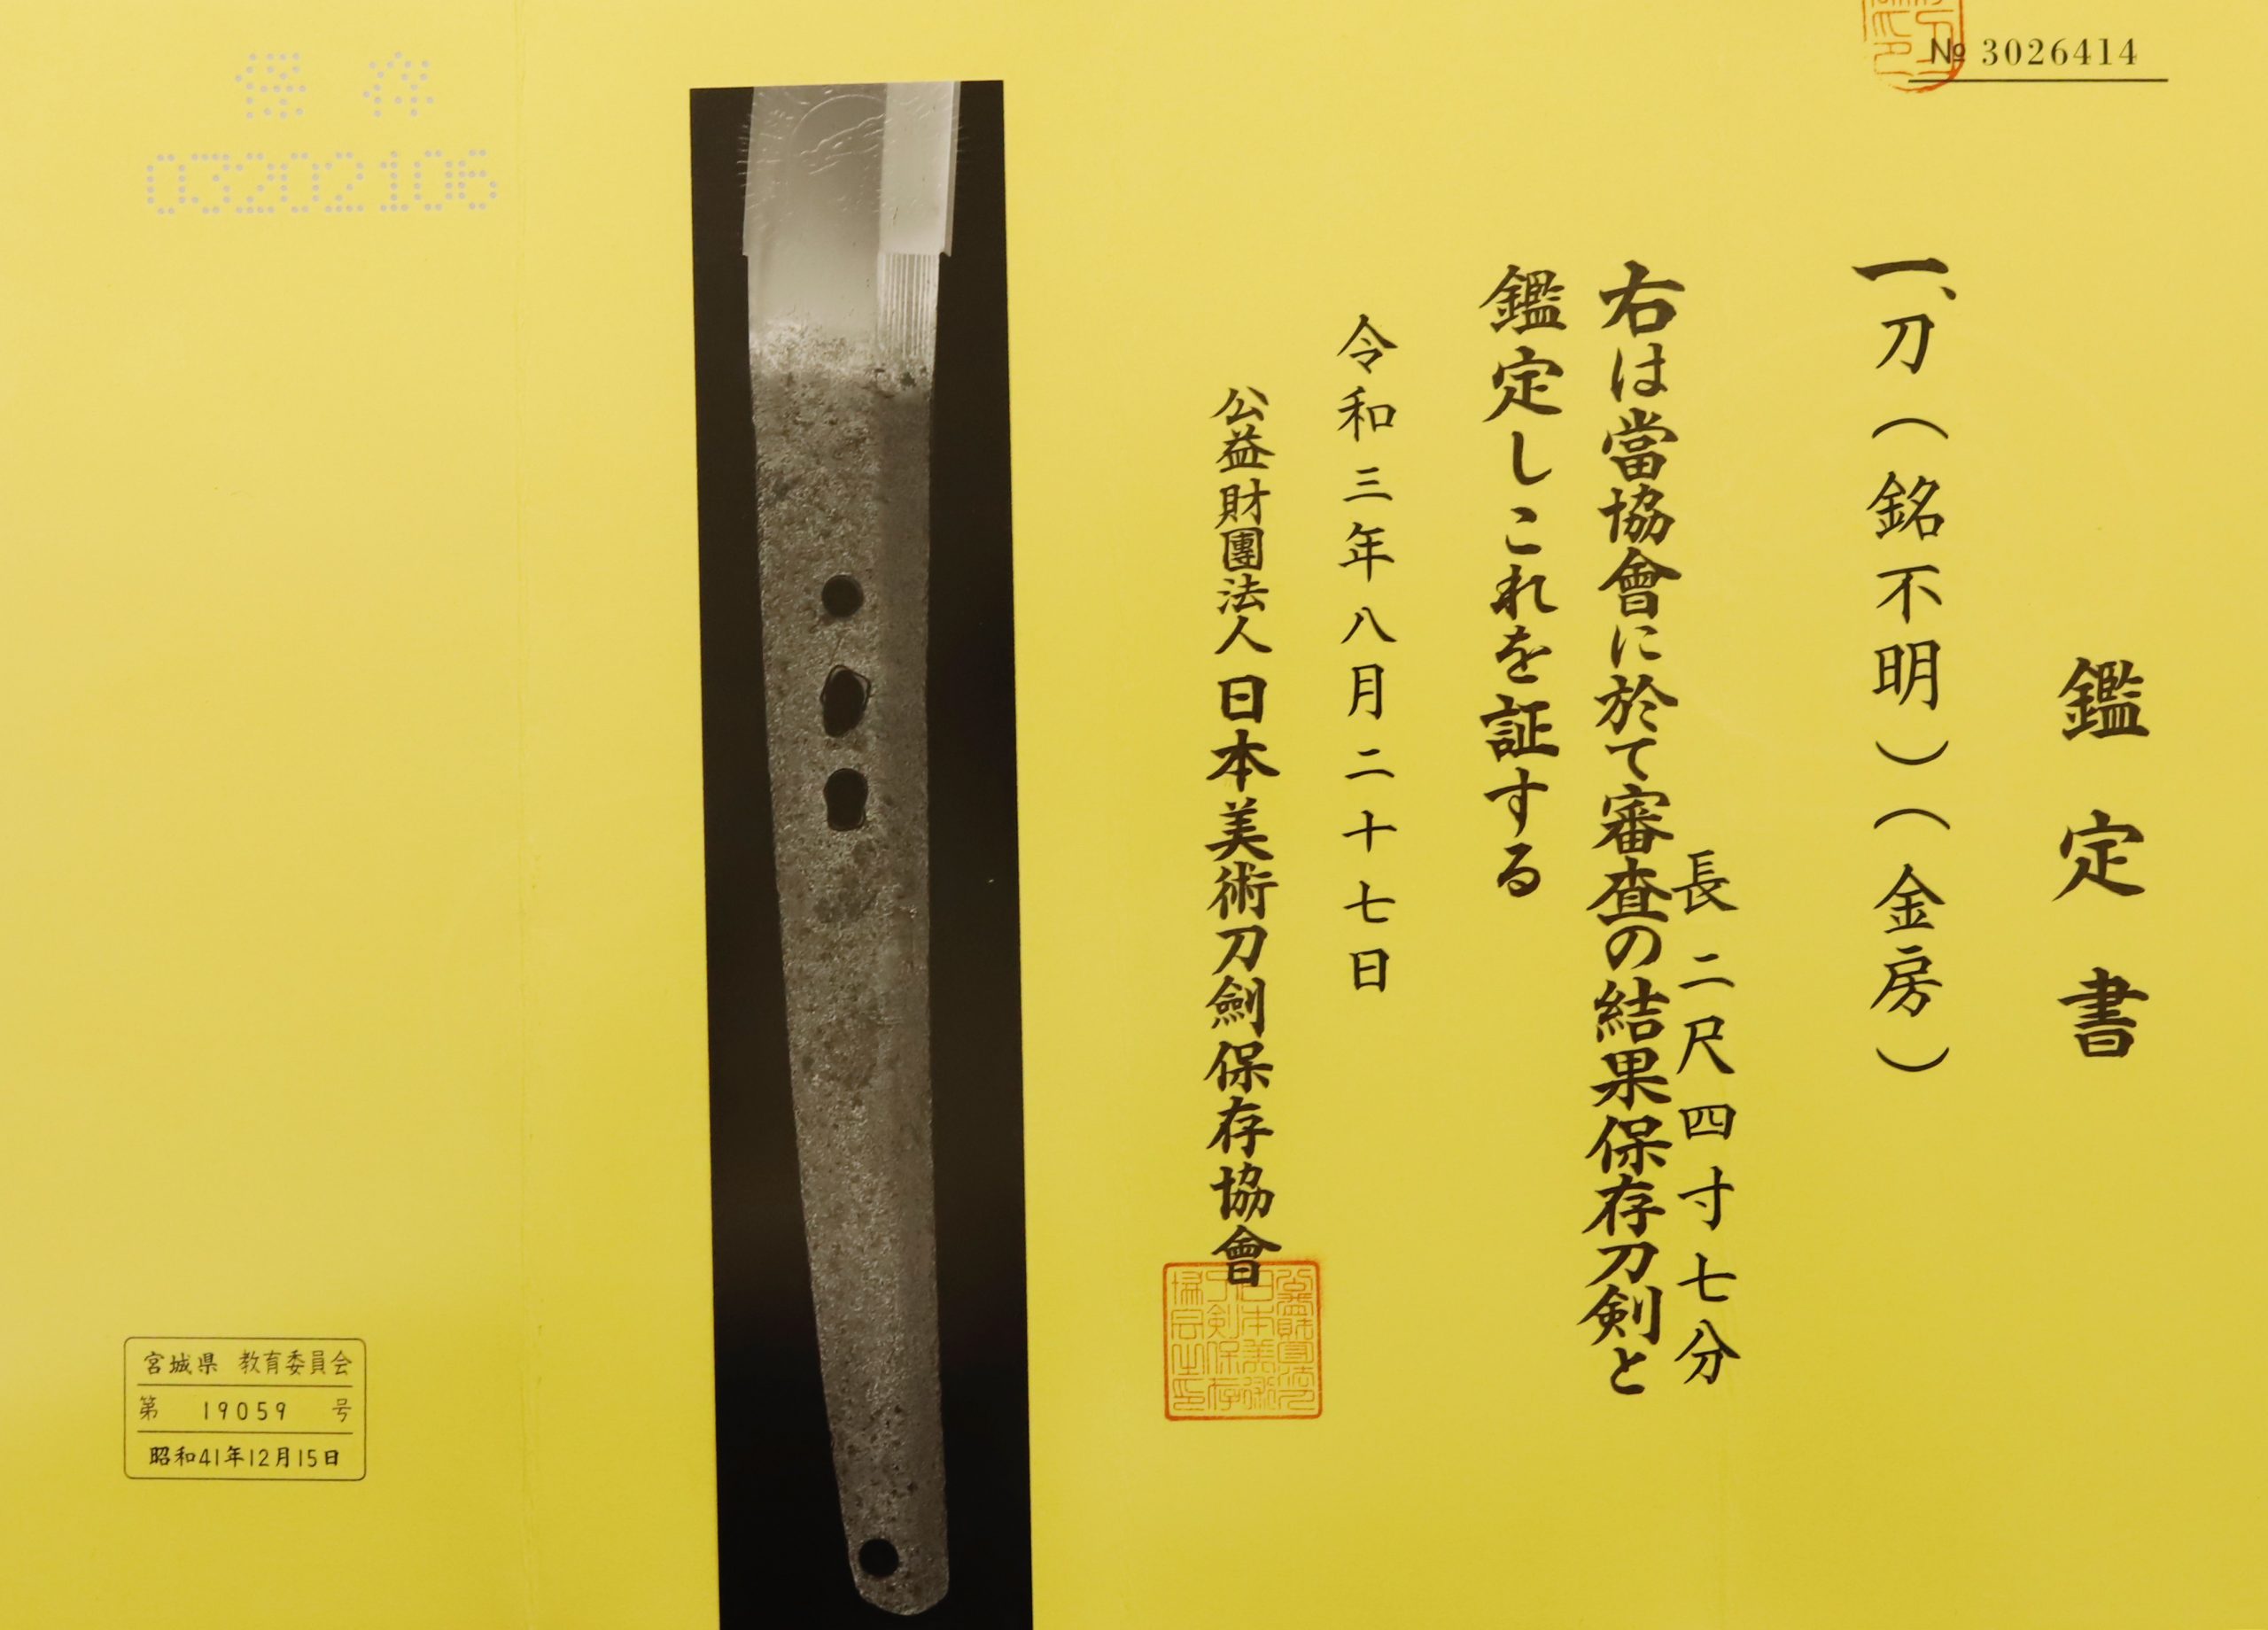 № 3026414
鑑定書
一、刀(銘不明)(金房)
長二尺四寸七分
右は當協會に於て審査の結果保存刀剣と
鑑定しこれを証する
令和三年八月二十七日
公益財團法人日本美術刀劍保存協會
保存
03202106
宮城県 教育委員会
第 19059 号
昭和41年12月15日